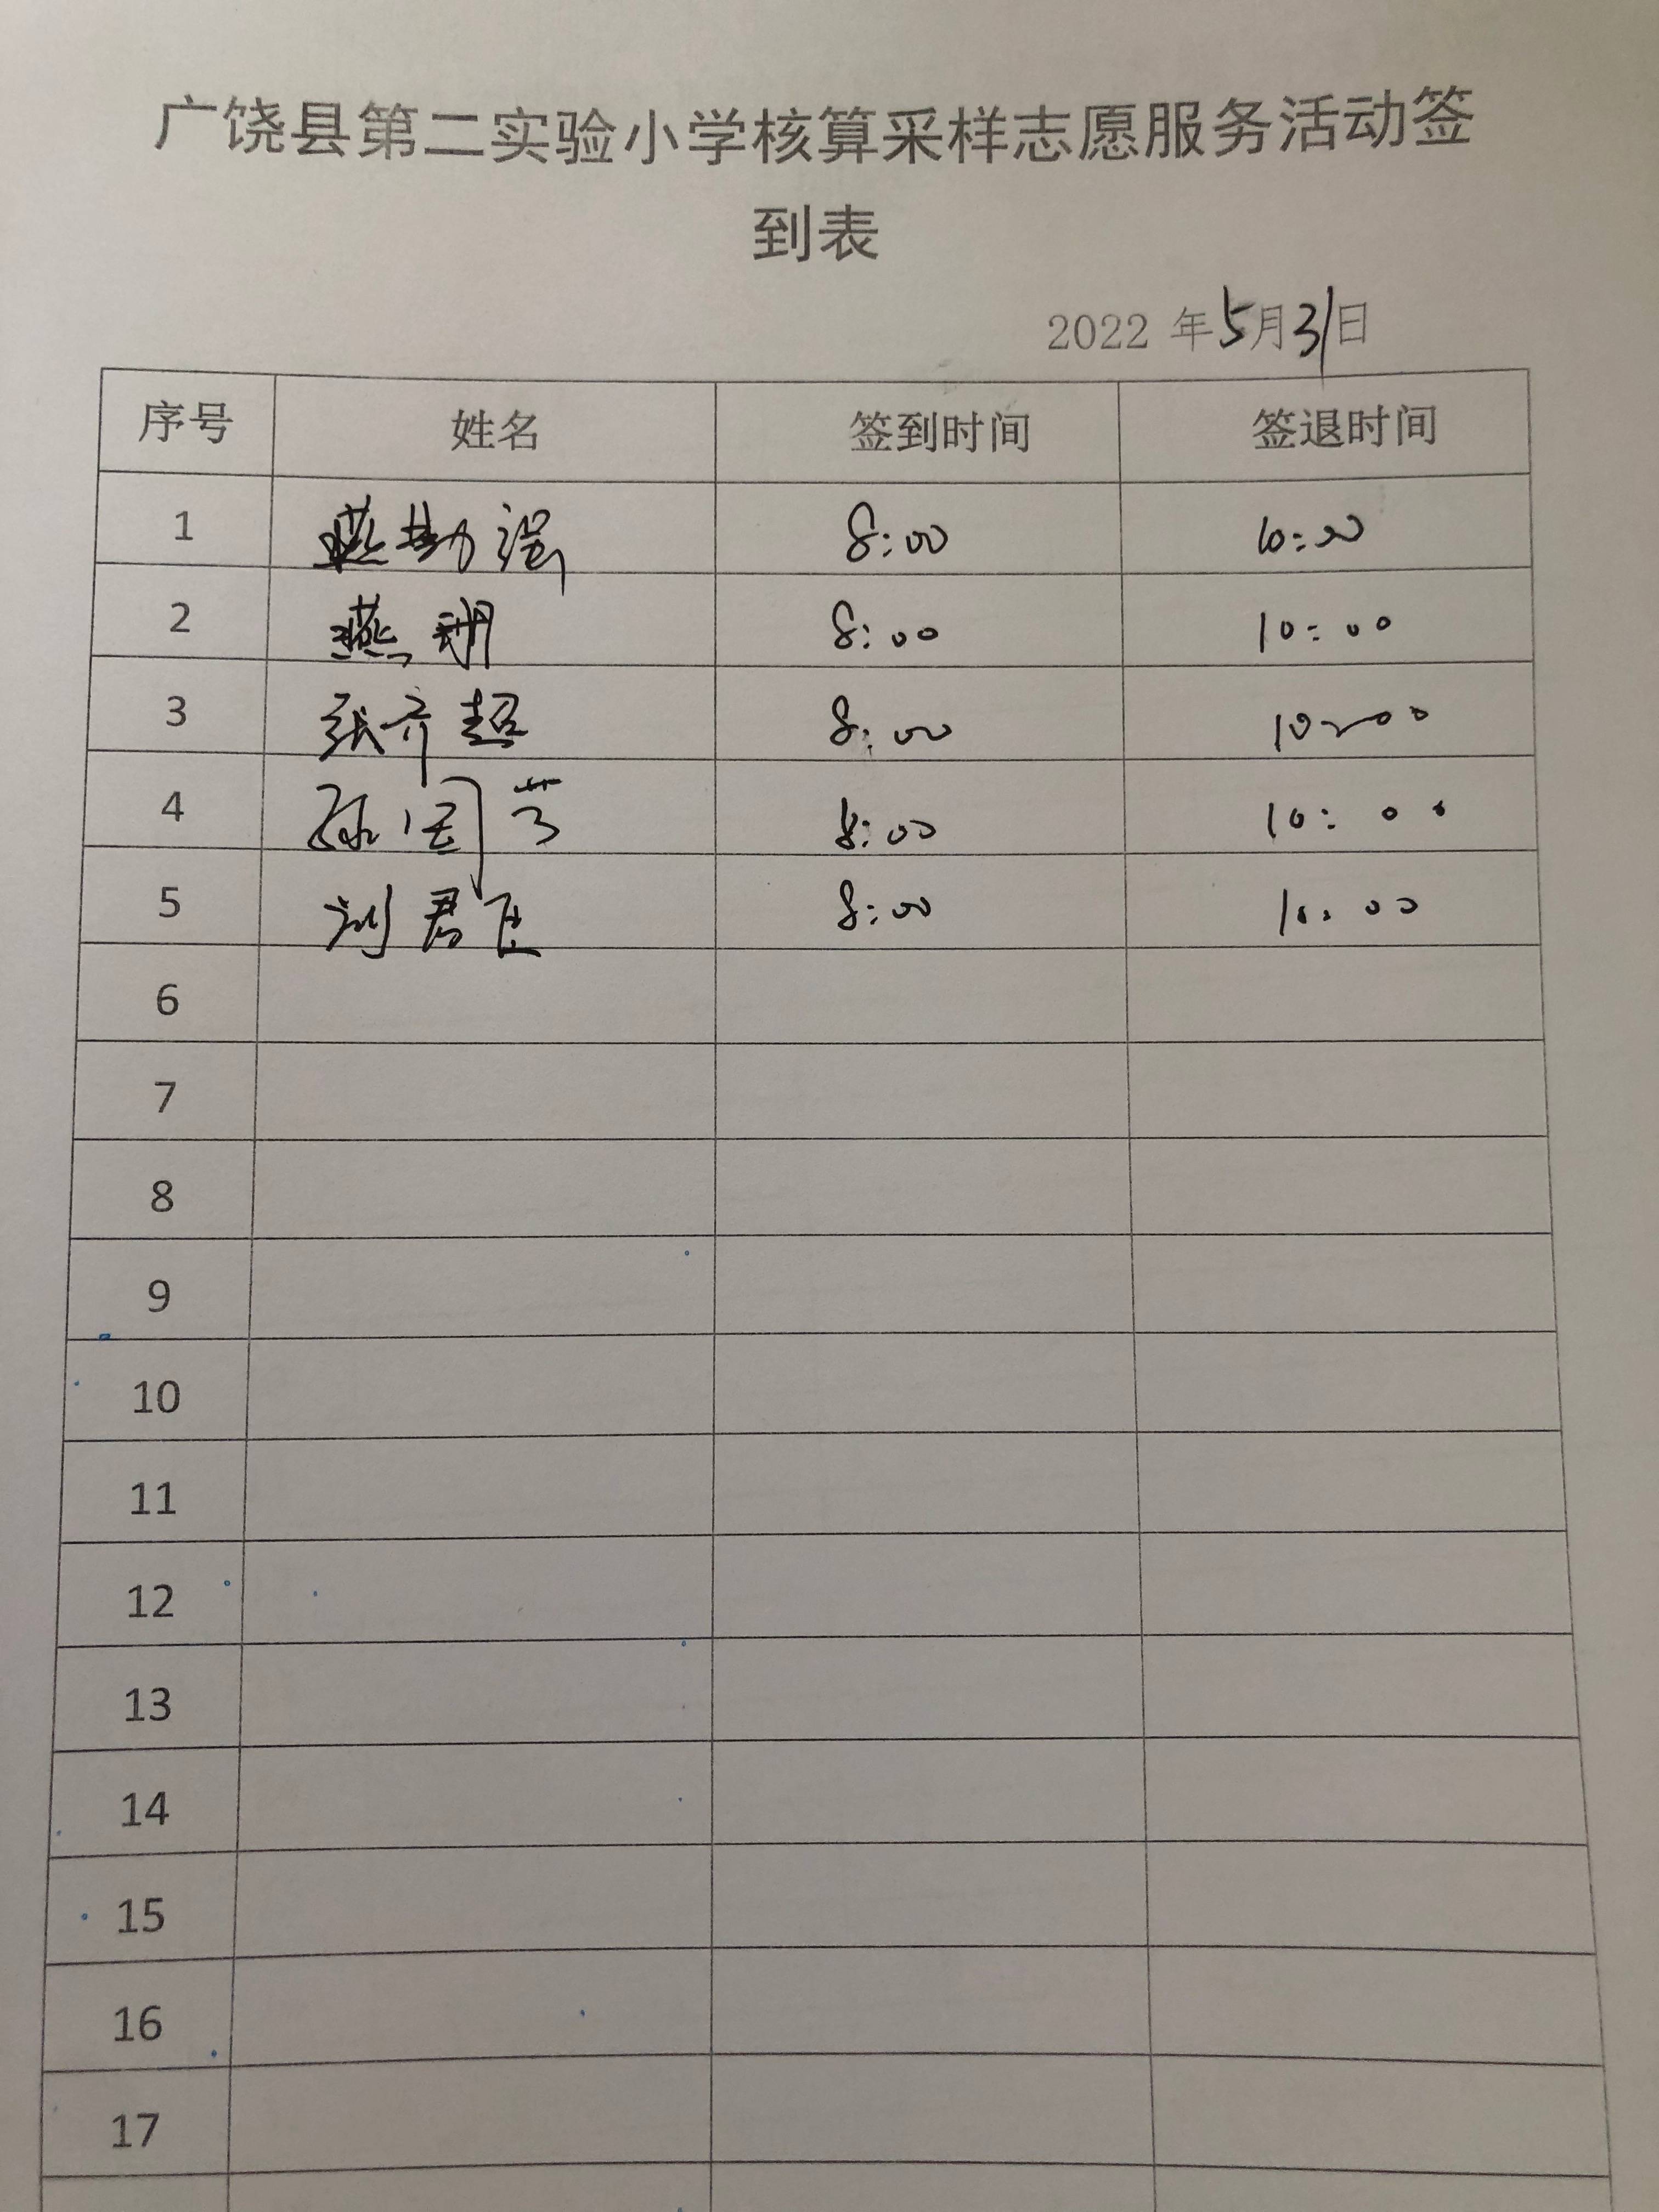 广饶县第二实验小学核算采样志愿服务活动签
到表
2022 年5月31日
序号 姓名 签到时间 签退时间
1 燕勃强 8:00 10:00
2 燕翀 8:00 10:00
3 张齐超 8:00 10:00
4 孙国芳 8:00 10:00
5 刘君 8:00 10:00
6
7
8
9
10
11
12
13
14
15
16
17